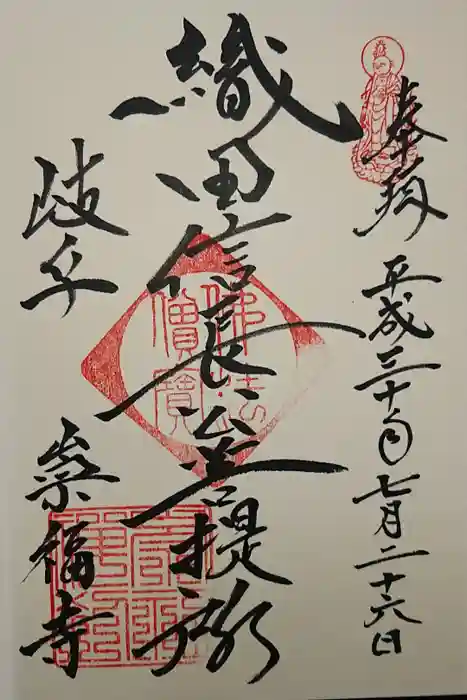 奉拝
平成三十年七月二十六日
織田信長公菩提所
岐阜
崇福寺
佛法僧寳